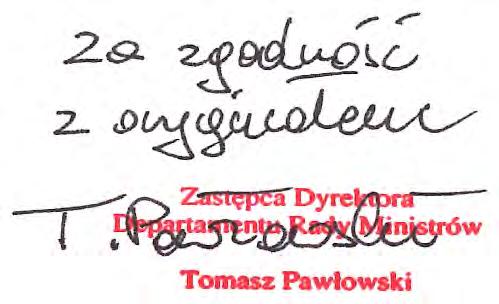 Za zgodność
z oryginałem
Zastępca Dyrektora
Departamentu Rady Ministrów
T. Pawłowski
Tomasz Pawłowski